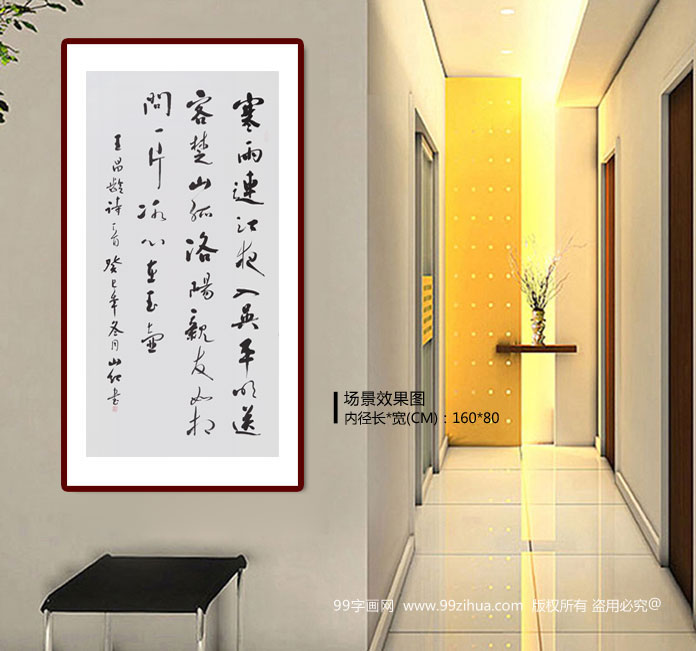 寒雨連江夜入吳平明送
客楚山孤洛陽親友如相
問一片冰心在玉壺
王昌齡诗一首 癸巳年冬月 山红书
场景效果图
内径长*宽(CM)：160*80
99字画网 www.99zihua.com 版权所有 盗用必究@